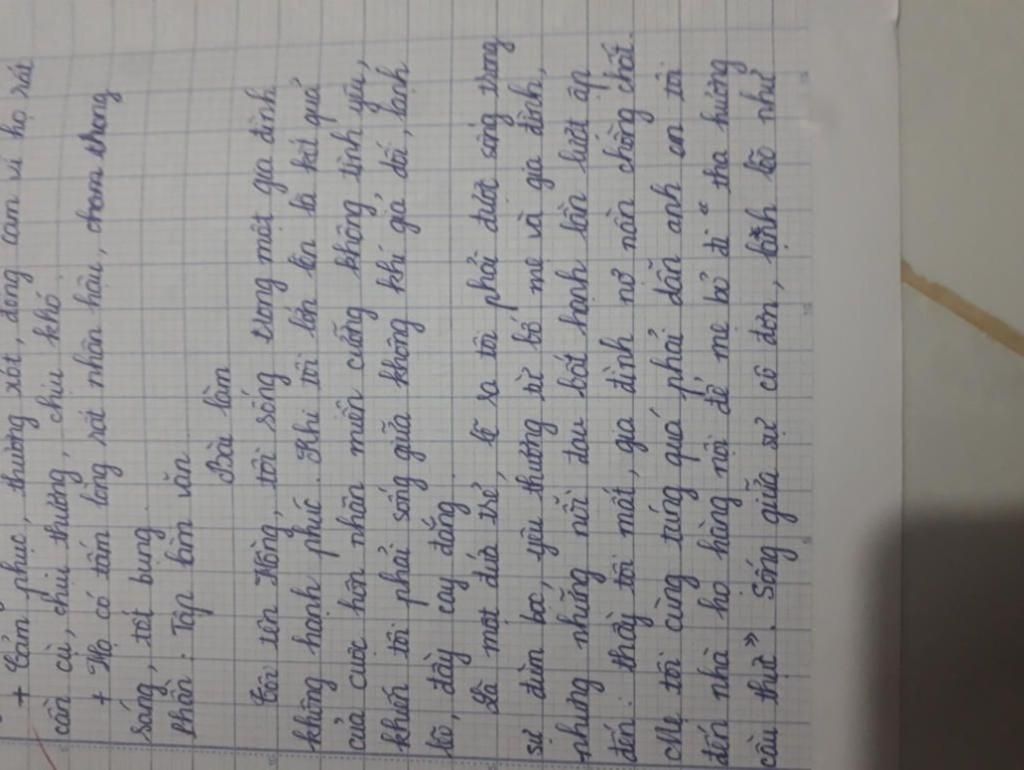 + Cảm phục, thương xót, đồng cảm vì họ rất
cần cù, chịu thương, chịu khó
+ Họ có tấm lòng rất nhân hậu, trong
sáng, tốt bụng.
Phần. Tập làm văn
Bài làm
Tôi tên Hồng, tôi sống trong một gia đình
không hạnh phúc. Khi tôi lớn lên là kết quả
của cuộc hôn nhân miễn cưỡng không tình yêu,
khiến tôi phải sống giữa không khí giả dối, lạnh
lẽo, đầy cay đắng.
Là một đứa trẻ, lẽ ra tôi phải được sống trong
sự đùm bọc, yêu thương từ bố mẹ và gia đình,
nhưng những nỗi đau bất hạnh lần lượt ập
đến: thầy tôi mất, gia đình nợ nần chồng chất.
Mẹ tôi cùng túng quá phải dẫn anh em tôi
đến nhà họ hàng nội để mẹ bỏ đi " tha hương
cầu thực". Sống giữa sự cô đơn, lạnh lẽo như